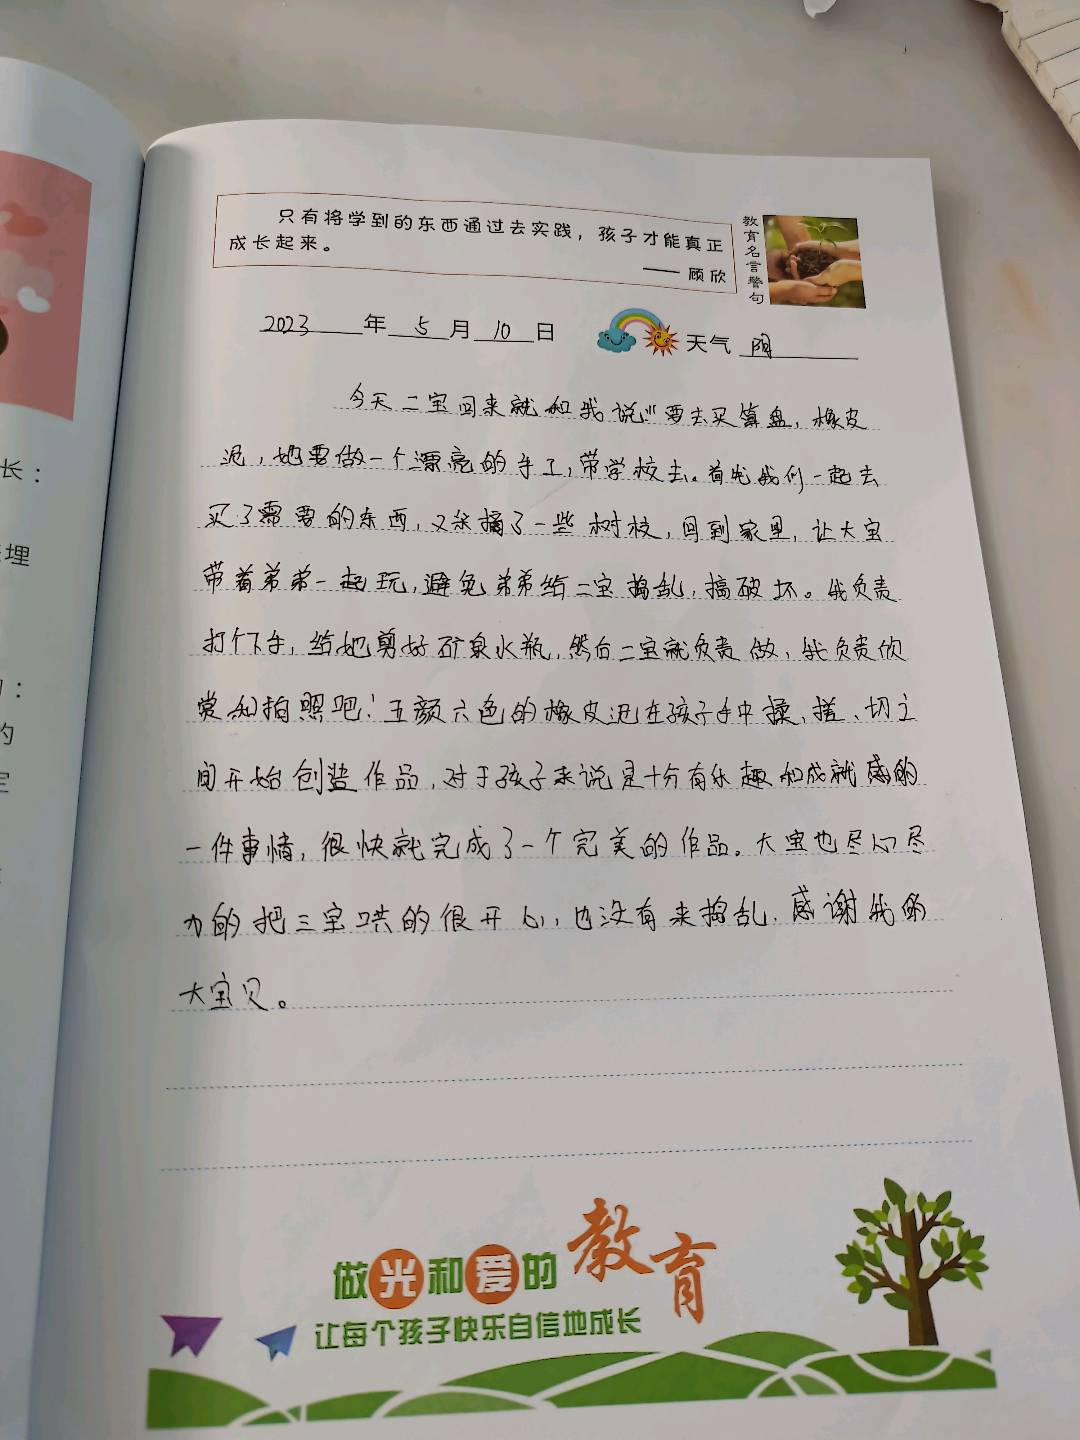 长：
埋
：
的
只有将学到的东西通过去实践，孩子才能真正
成长起来。
—— 顾欣
教育名言警句
2023 年 5 月 10 日
天气 阴
今天二宝回来就和我说"要去买算盘，橡皮
泥，她要做一个漂亮的手工，带学校去。首先我们一起去
买了需要的东西，又采摘了一些树枝，回到家里，让大宝
带着弟弟一起玩，避免弟弟给二宝捣乱，搞破坏。我负责
打个下手，给她剪好矿泉水瓶，然后二宝就负责做，我负责欣
赏和拍照吧！五颜六色的橡皮泥在孩子手中揉、搓、切之
间开始创造作品，对于孩子来说是十分有乐趣和成就感的
一件事情，很快就完成了一个完美的作品。大宝也尽心尽
力的把三宝哄的很开心，也没有来捣乱，感谢我的
大宝贝。
做光和爱的教育
让每个孩子快乐自信地成长